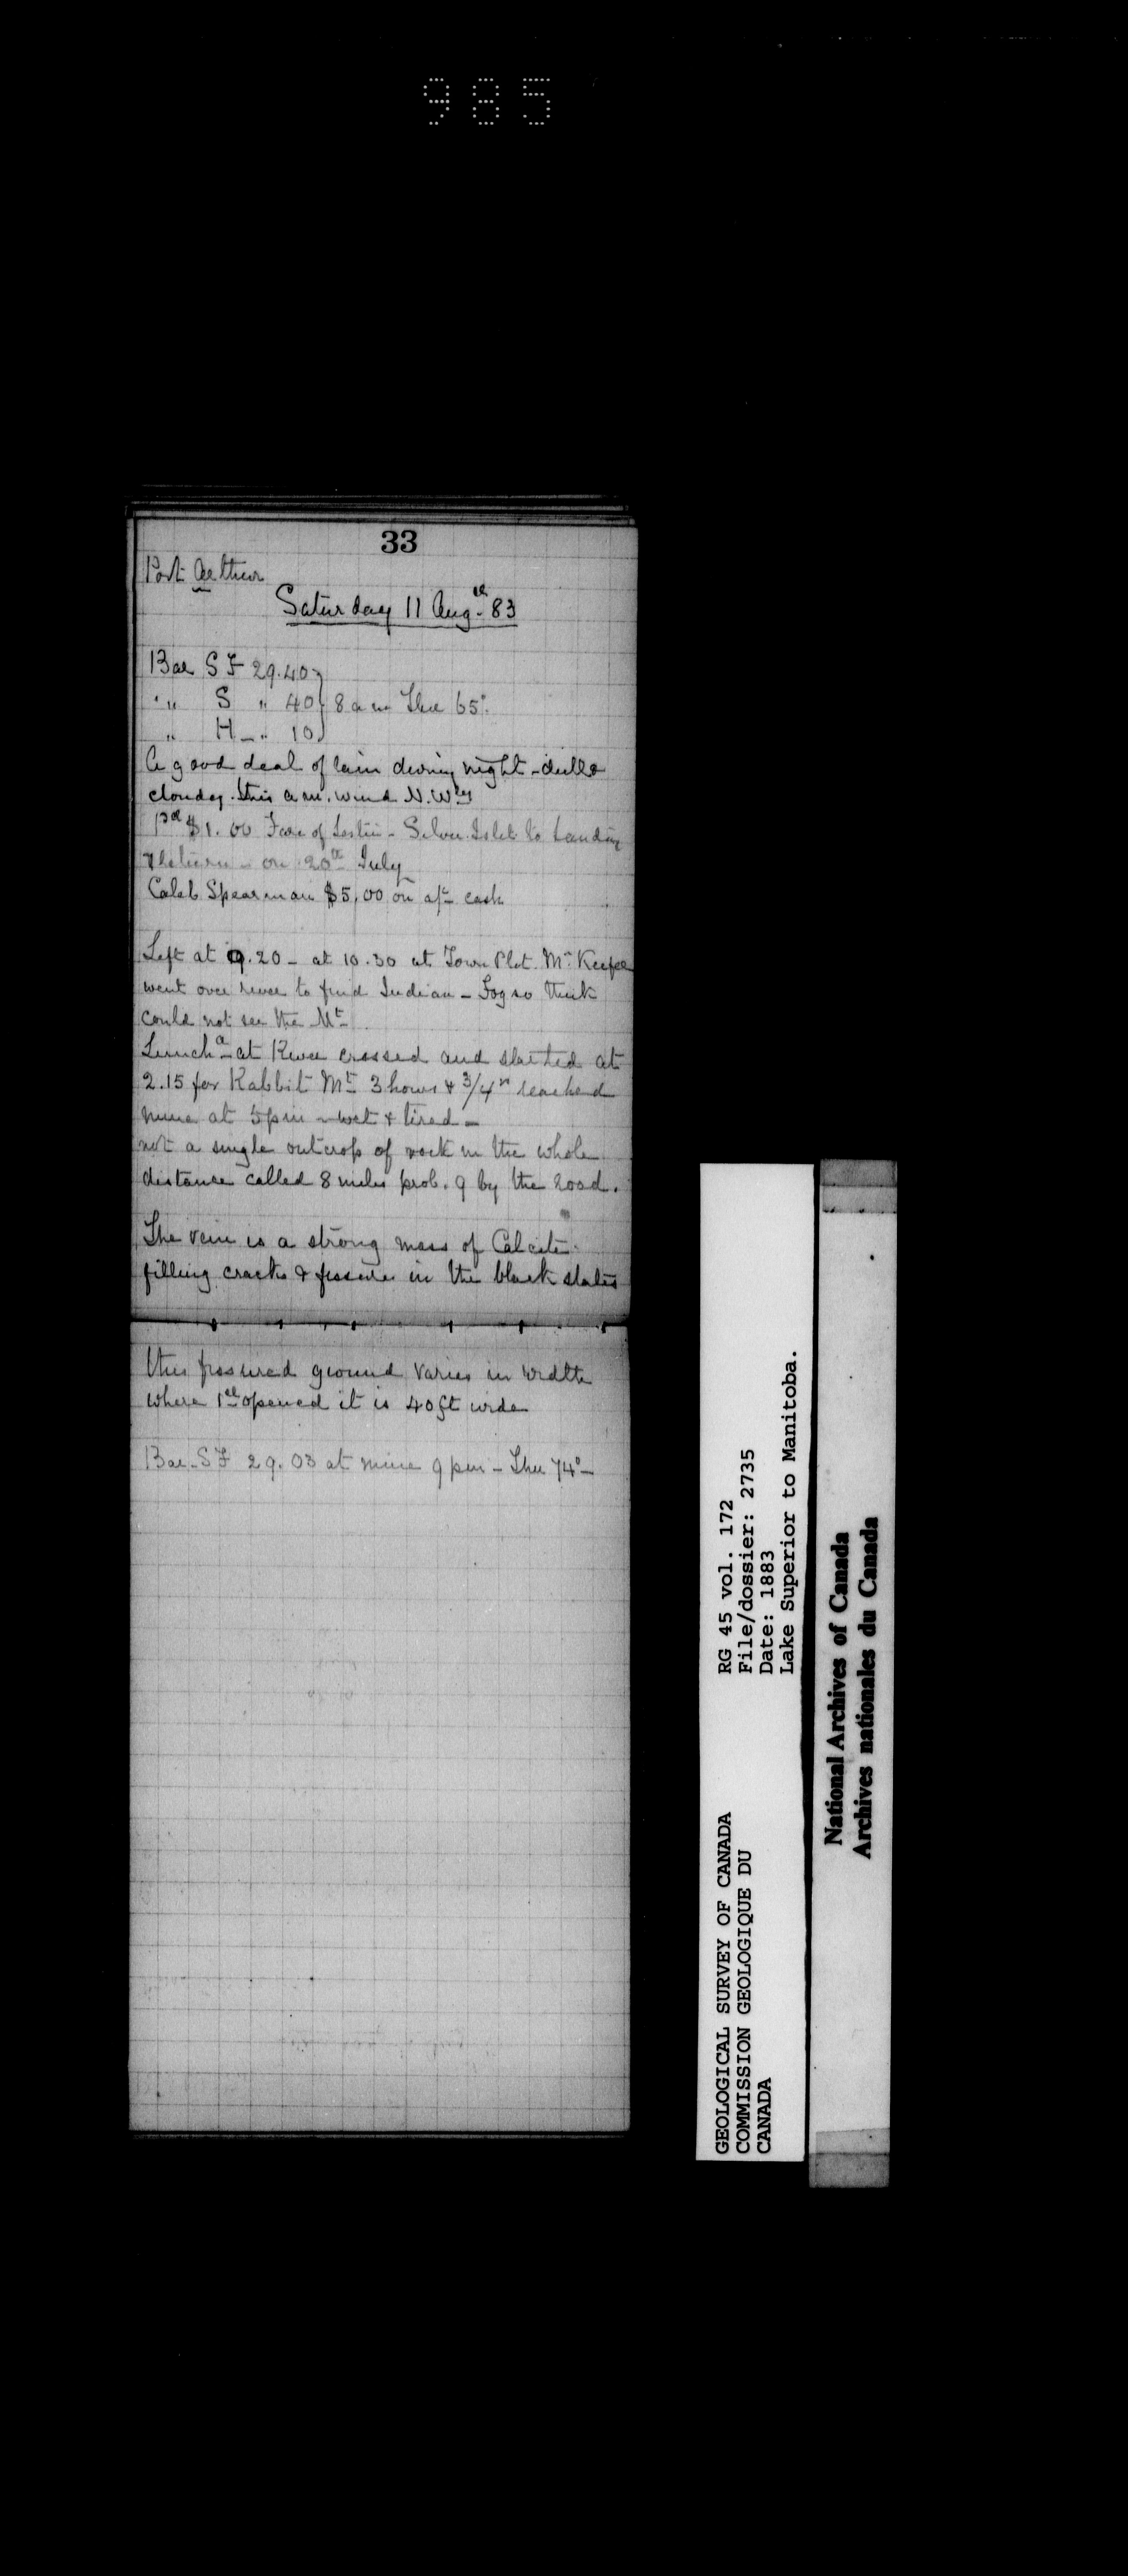 985
33
Port Arthur
Saturday 11 Aug th 83
Bar S F 29.40
" S " 40 } 8 am Ther 65°
" H - " 10
A good deal of rain during night - dull &
cloudy this a.m. wind N. Wly
Pd $1.00 Fare of - Silver Islet to Landing
& return - on 20th July
Caleb Spearman $5.00 on a/c cash
Left at 9.20 - at 10.30 at Town Plot. Mr Keefer
went over river to find Indian - Fog so thick
could not see the Mt
Lunch d at River crossed and started at
2.15 for Rabbit Mt 3 hours & 3/4 reached
mine at 5 pm - wet & tired -
not a single outcrop of rock in the whole
distance called 8 miles prob. 9 by the road.
The vein is a strong mass of Calcite
filling cracks & fissures in the black slates
this fissured ground varies in width
where 1st opened it is 40 ft wide
Bar. S F 29.03 at mine 9 pm - Ther 74° -
GEOLOGICAL SURVEY OF CANADA
COMMISSION GEOLOGIQUE DU
CANADA
RG 45 vol. 172
File/dossier: 2735
Date: 1883
Lake Superior to Manitoba.
National Archives of Canada
Archives nationales du Canada